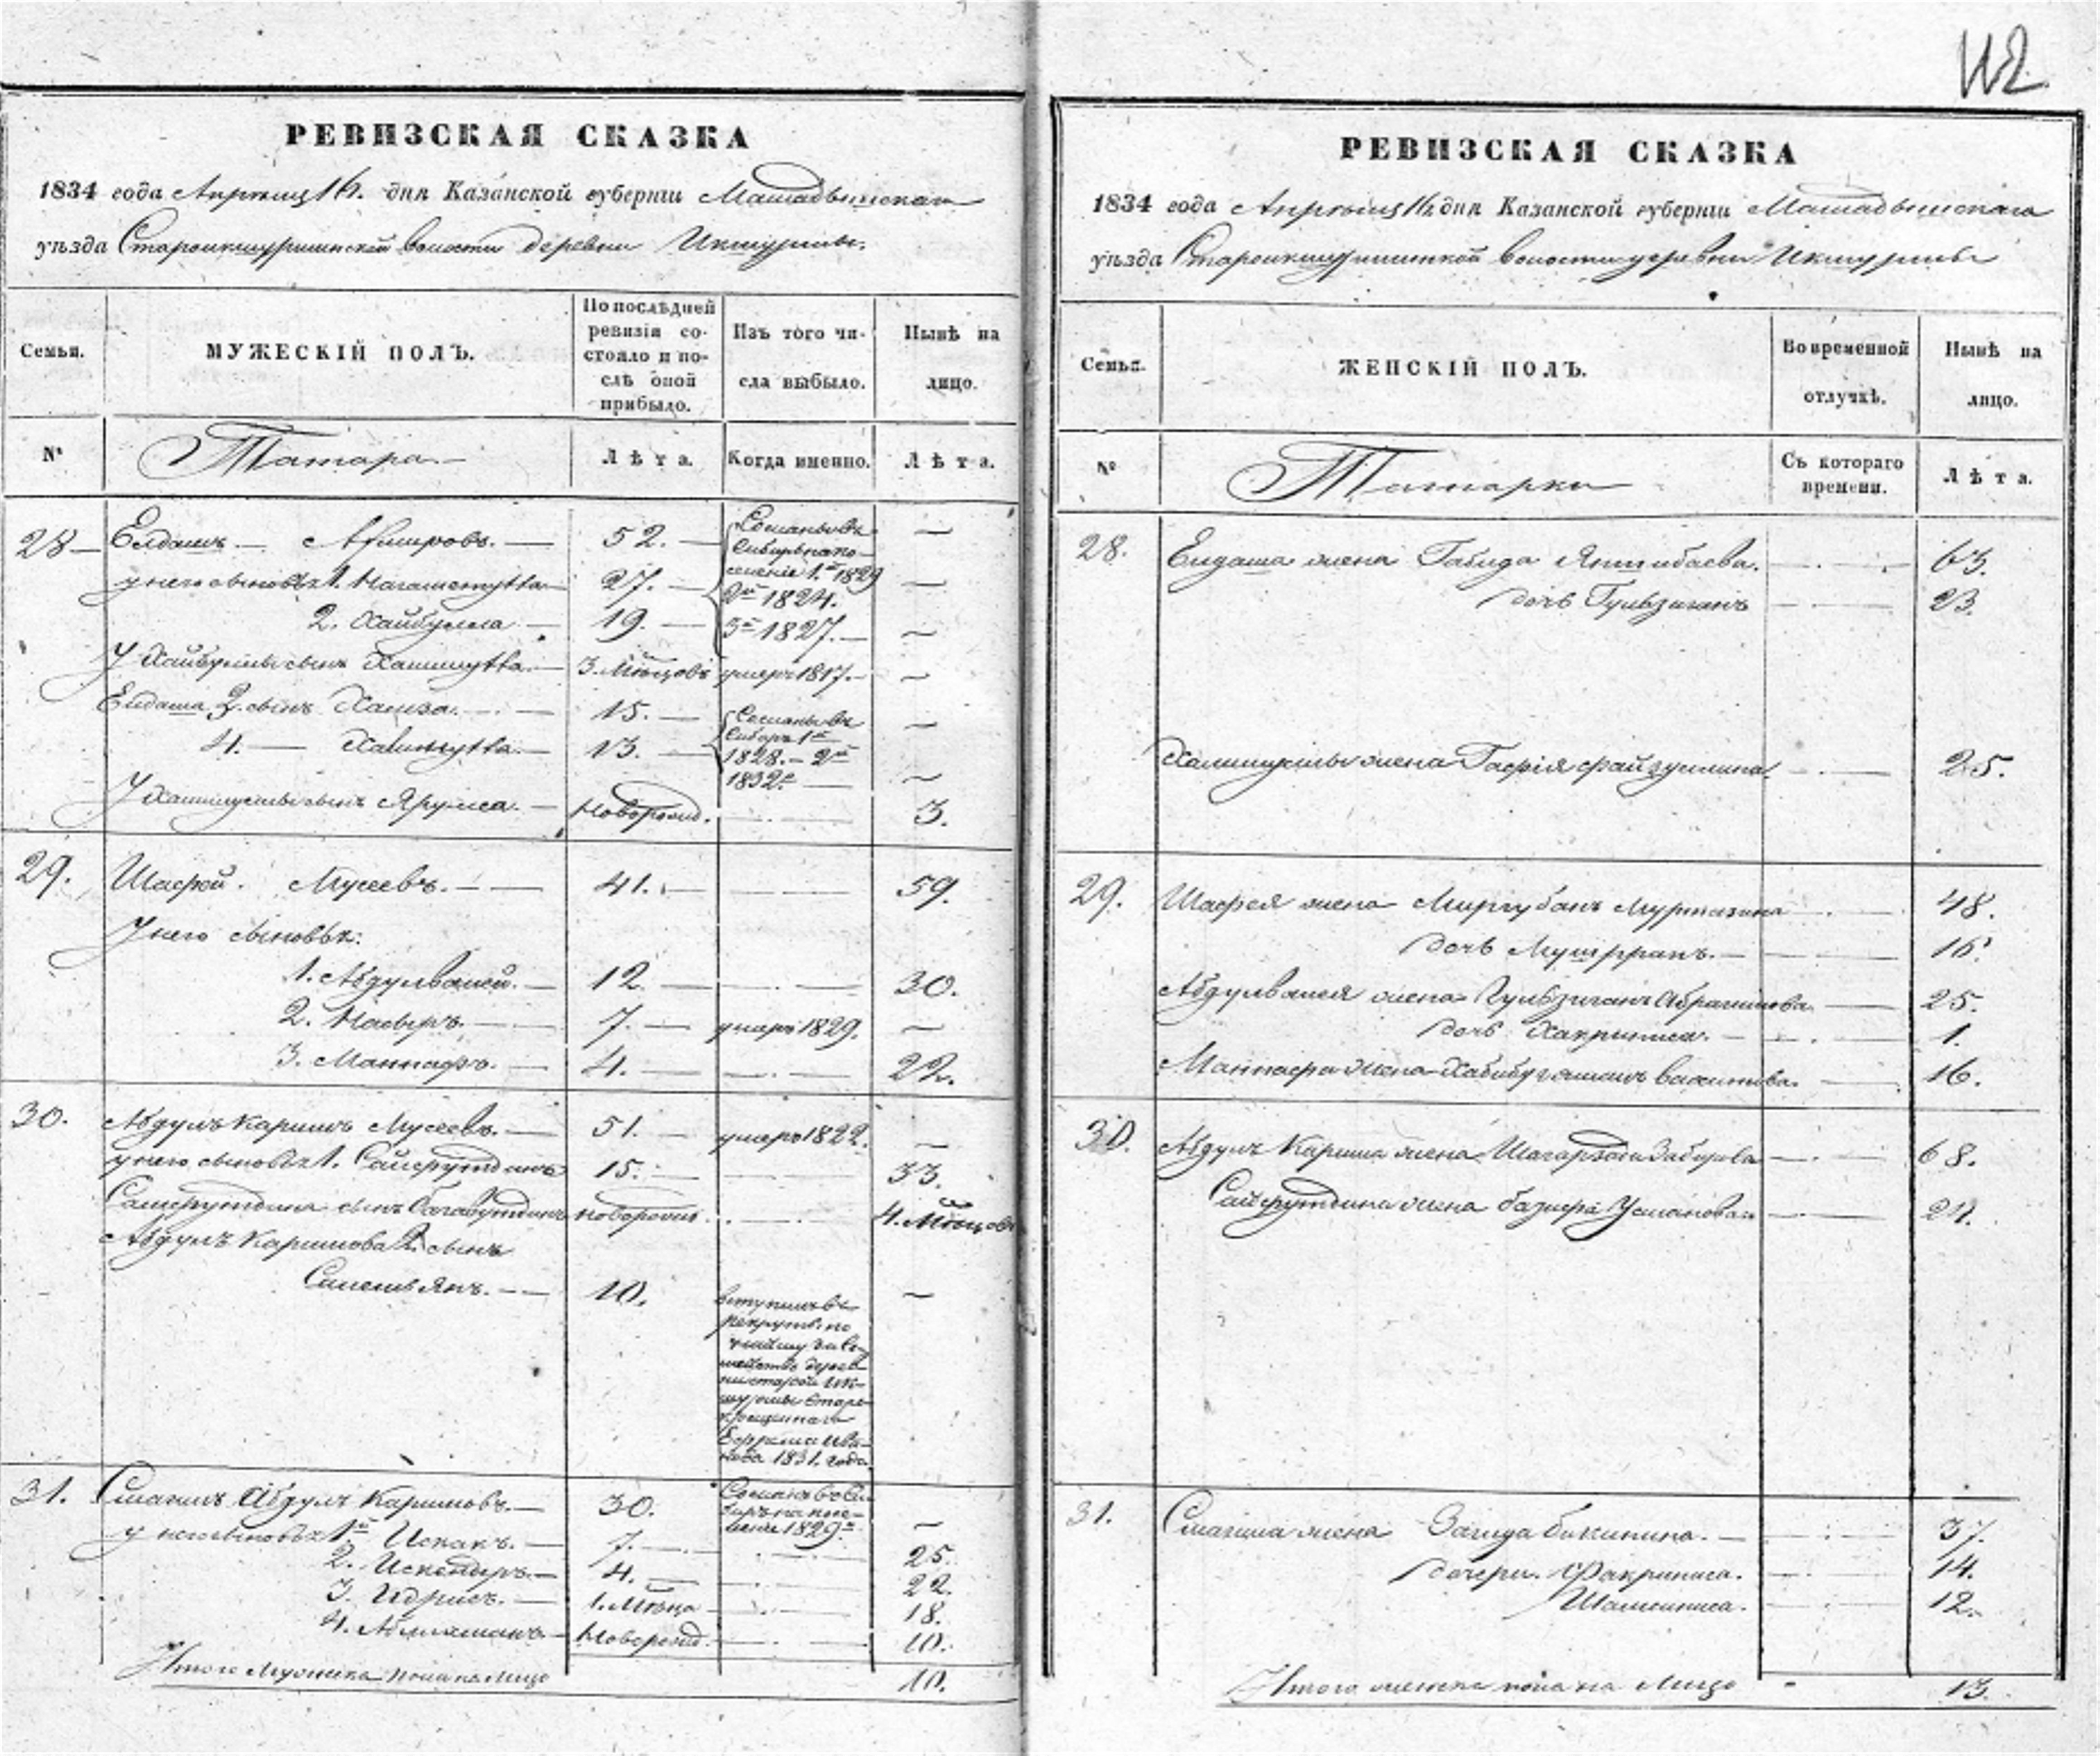 112
РЕВИЗСКАЯ СКАЗКА
1834 года Апреля 16. дня Казанской губерніи Мамадышскаго
уѣзда Староикшурминской волости деревни Икшурмы.
Семьи.
МУЖЕСКІЙ ПОЛЪ.
По послѣдней
ревизіи со-
стояло и по-
слѣ оной
прибыло.
Изъ того чи-
сла выбыло.
Нынѣ на
лицо.
№
Татара
Лѣта.
Когда именно.
Лѣта.
28 Елдашъ Амировъ. 52. Сосланы въ
Сибирь на по-
селеніе 1.й 1829
у него сыновья 1. 27.
2й 1824.
2. Хайбулла 19. 3й 1827.
У Хайбуллы сынъ 3. Мѣсцовъ умеръ 1817.
Елдаша 3. сынъ Хамза. 15. Сосланы въ
4. 13. Сибирь 1й
1828. 2й
1832.
У сынъ Новорожд. 3.
29. Шафей. Мусеевъ. 41. 59.
У него сыновья:
1. Абдулвалей. 12. 30.
2. Насыръ. 7. умеръ 1829.
3. Маннафъ. 4. 22.
30. Абдулъ Каримъ Мусеевъ. 51. умеръ 1822.
у него сыновья 1. Сайфутдинъ 15. 33.
Сайфутдина сынъ Багаутдинъ новорожд. 4. Мѣсцовъ
Абдулъ Каримова 2. сынъ
10. вступилъ въ
рекруты по
найму за се-
мейство дерев
ни старой Ик-
шурмы старо-
крещенаго
Ефрема Ива-
нова 1831. года.
31. Смагилъ Абдулъ Каримовъ. 30. Сосланъ въ Си-
бирь на посе-
леніе 1829
у него сыновья 1й Искакъ. 7. 25.
2. Искендеръ. 4. 22.
3. Идрисъ. 1. Мѣсца 18.
4. Новорожд. 10.
Итого Мужеска пола на Лицо 10.
РЕВИЗСКАЯ СКАЗКА
1834 года Апреля 16 дня Казанской губерніи Мамадышскаго
уѣзда Староикшурминской волости деревни Икшурмы
Семьи.
ЖЕНСКІЙ ПОЛЪ.
Во временной
отлучкѣ.
Нынѣ на
лицо.
№
Татарки
Съ котораго
времени.
Лѣта.
28. Елдаша жена Габида Яхшибаева. 63.
дочь Гульзиганъ 23.
жена Гафія Файзуллина. 25.
29. Шафея жена Миргубанъ Муртазина 48.
дочь 16.
Абдулвалея жена Гульзиганъ Абрагимова 25.
дочь Хакриниса. 1.
Маннафа жена 16.
30. Абдулъ Карима жена 68.
Сайфутдина жена Усманова 24.
31. Смагила жена Загида Бикинина. 37.
дочери. Факриниса. 14.
Шамсиниса. 12.
Итого женска пола на Лицо 13.